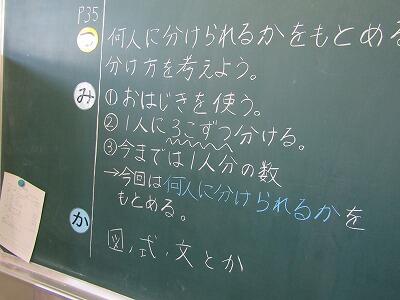 P35
つ
何人に分けられるかをもとめる
分け方を考えよう。
み
①おはじきを使う。
②1人に3こずつ分ける。
③今までは1人分の数
→今回は何人に分けられるかを
もとめる。
か
図,式,文とか